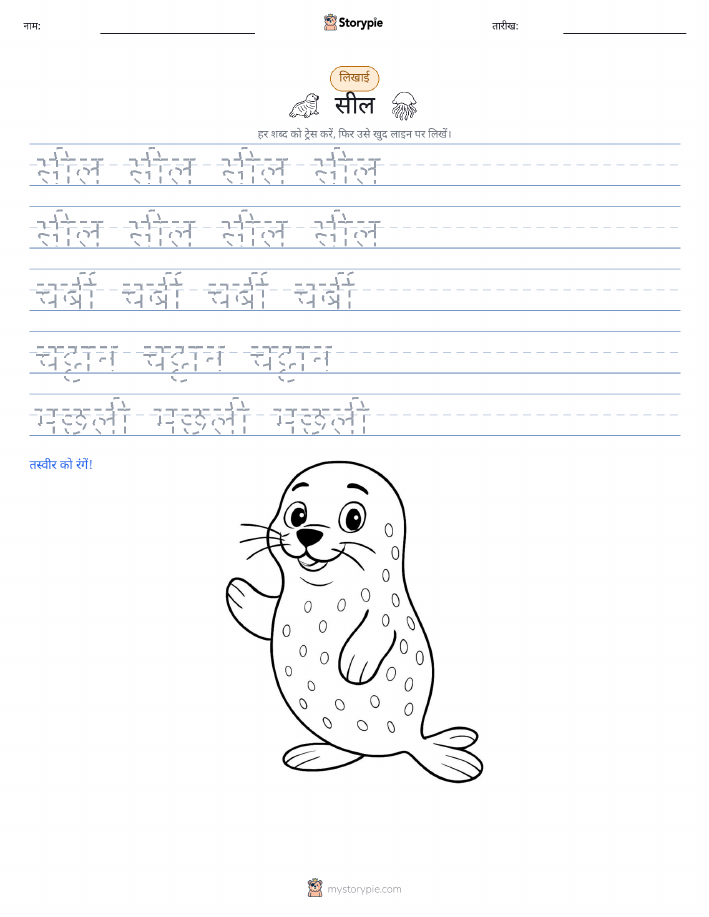 नाम: Storypie तारीख:
लिखाई
सील
हर शब्द को ट्रेस करें, फिर उसे खुद लाइन पर लिखें।
सील सील सील सील
सील सील सील सील
चर्बी चर्बी चर्बी चर्बी
चट्टान चट्टान चट्टान
मछली मछली मछली
तस्वीर को रंगें!
mystorypie.com